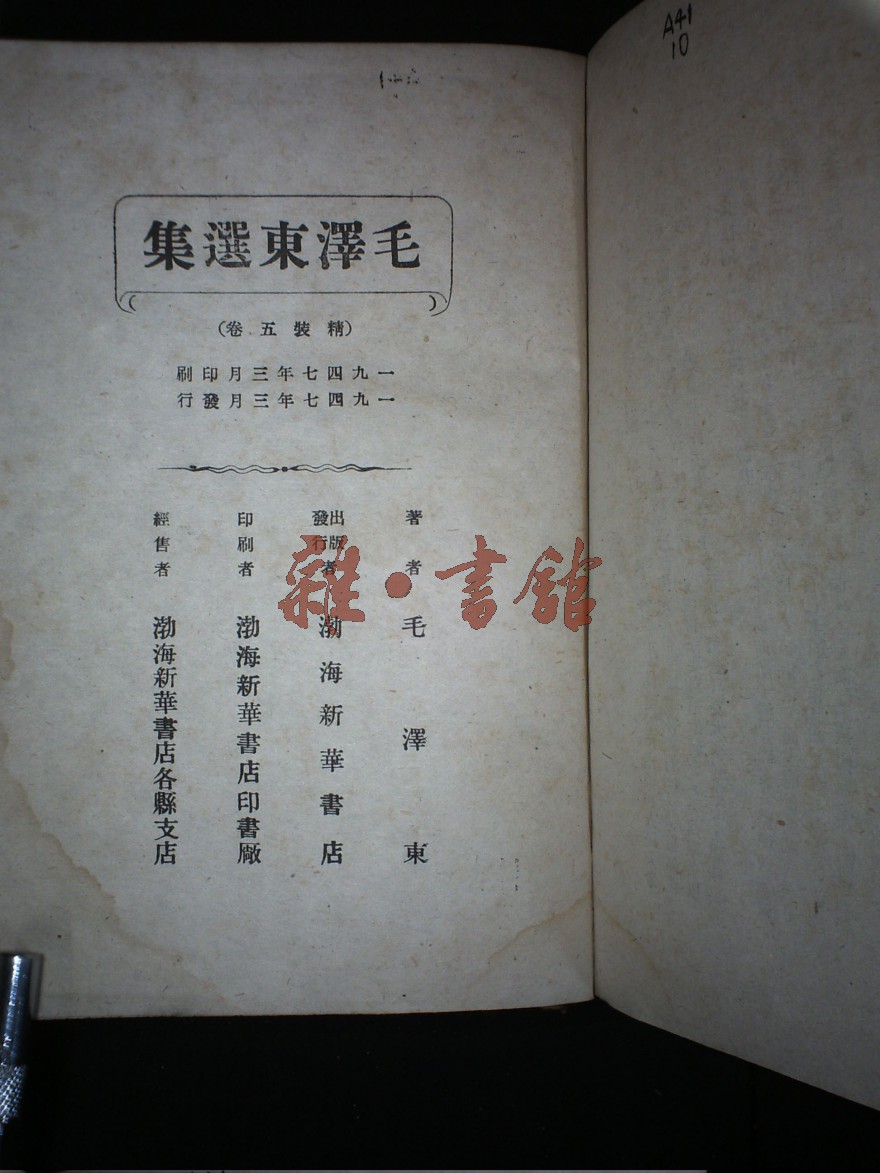 毛澤東選集
(精裝五卷)
一九四七年三月印刷
一九四七年三月發行
著者 毛澤東
出版發行者 渤海新華書店
印刷者 渤海新華書店印書廠
經售者 渤海新華書店各縣支店
雜·書館
A41
10